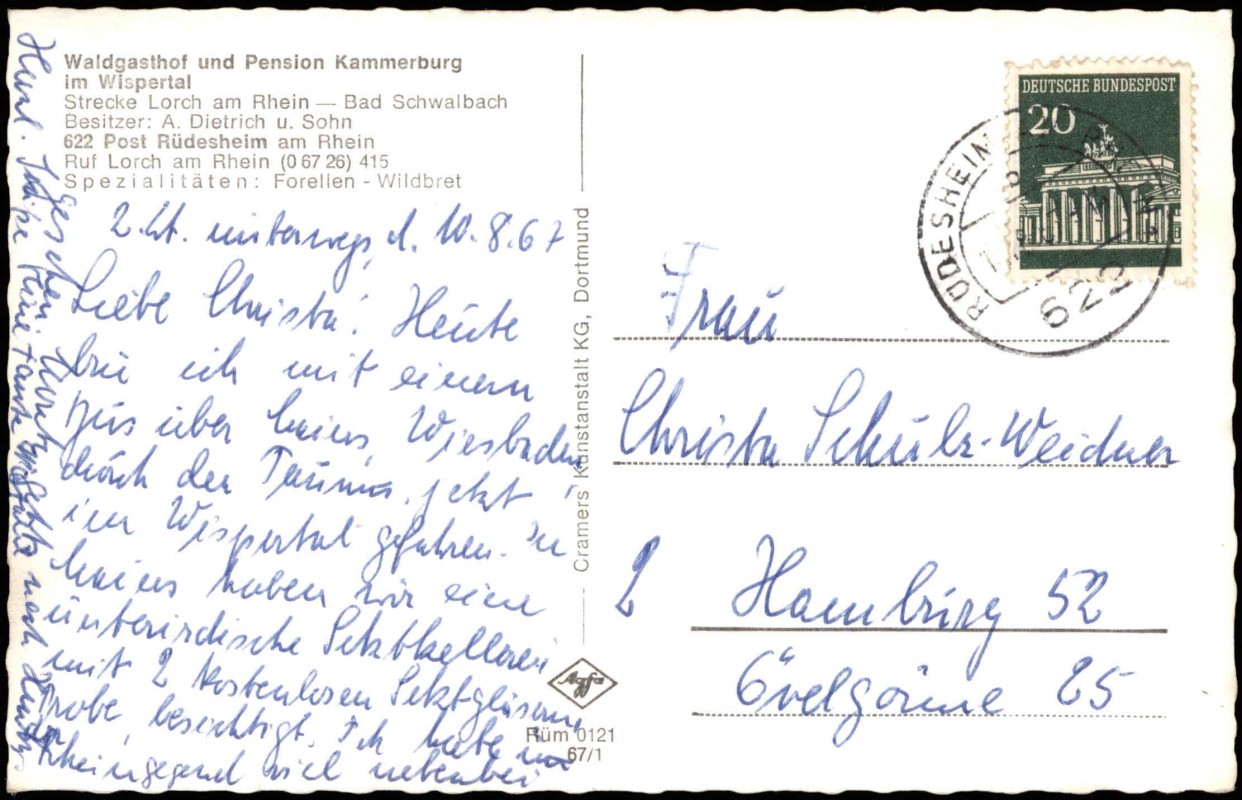 Waldgasthof und Pension Kammerburg
im Wispertal
Strecke Lorch am Rhein — Bad Schwalbach
Besitzer: A. Dietrich u. Sohn
622 Post Rüdesheim am Rhein
Ruf Lorch am Rhein (0 67 26) 415
Spezialitäten: Forellen - Wildbret
z.Zt. unterwegs, d. 10.8.67
Liebe Christa! Heute
bin ich mit einem
Bus über Mainz, Wiesbaden
durch den Taunus, jetzt
im Wispertal gefahren. In
Mainz haben wir eine
unterirdische Sektkellerei
mit 2 kostenlosen Sektgläsern
Probe, besichtigt. Ich habe
Rheingegend viel nebenbei
gesehen.
Herzl. Deine Tante
Cramers Kunstanstalt KG, Dortmund
Agfa
Rüm 0121
67/1
DEUTSCHE BUNDESPOST
20
RÜDESHEIM
622
Frau
Christa Schulz-Weidner
2 Hamburg 52
Övelgönne 25